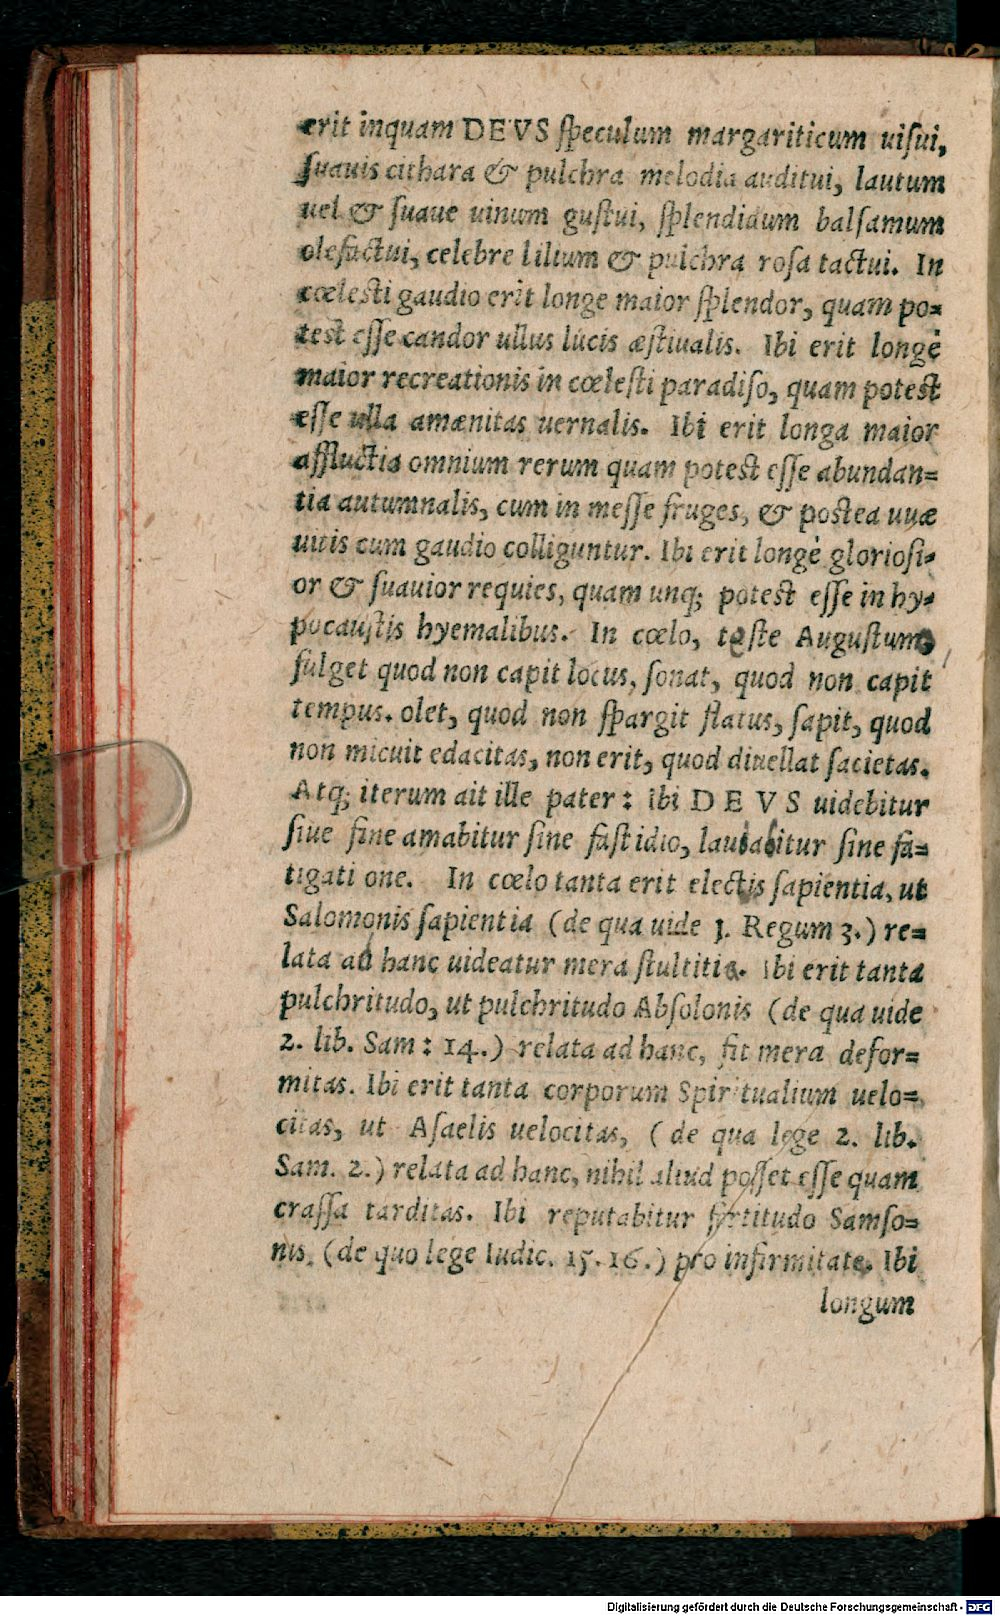 erit inquam DEVS ſpeculum margariticum uiſui,
ſuauis cithara & pulchra melodia auditui, lautum
uel & ſuaue uinum guſtui, ſplendidum balſamum
olefactui, celebre lilium & pulchra roſa tactui. In
cœleſti gaudio erit longe maior ſplendor, quam po=
test eſſe candor ullus lucis æſtiualis. Ibi erit longè
maior recreationis in cœleſti paradiſo, quam potest
eſſe ulla amænitas uernalis. Ibi erit longa maior
affluctia omnium rerum quam potest eſſe abundan=
tia autumnalis, cum in meſſe fruges, & postea uuæ
uitis cum gaudio colliguntur. Ibi erit longè glorioſi=
or & ſuauior requies, quam unq; potest eſſe in hy=
pocauſtis hyemalibus. In cœlo, teſte Auguſtum,
fulget quod non capit locus, ſonat, quod non capit
tempus. olet, quod non ſpargit flatus, ſapit, quod
non micuit edacitas, non erit, quod diuellat ſacietas.
Atq; iterum ait ille pater: ibi DEVS uidebitur
ſiue fine amabitur ſine faſtidio, laudabitur ſine fa=
tigati one. In cœlo tanta erit electis ſapientia, ut
Salomonis ſapientia (de qua uide 1. Regum 3.) re=
lata ad hanc uideatur mera ſtultitia. Ibi erit tanta
pulchritudo, ut pulchritudo Abſolonis (de qua uide
2. lib. Sam: 14.) relata ad hanc, ſit mera defor=
mitas. Ibi erit tanta corporum Spiritualium uelo=
citas, ut Aſaelis uelocitas, (de qua lege 2. lib.
Sam. 2.) relata ad hanc, nihil aliud poſſet eſſe quam
craſſa tarditas. Ibi reputabitur fortitudo Samſo=
nis, (de quo lege Iudic. 15. 16.) pro infirmitate. Ibi
longum
Digitalisierung gefördert durch die Deutsche Forschungsgemeinschaft - DFG